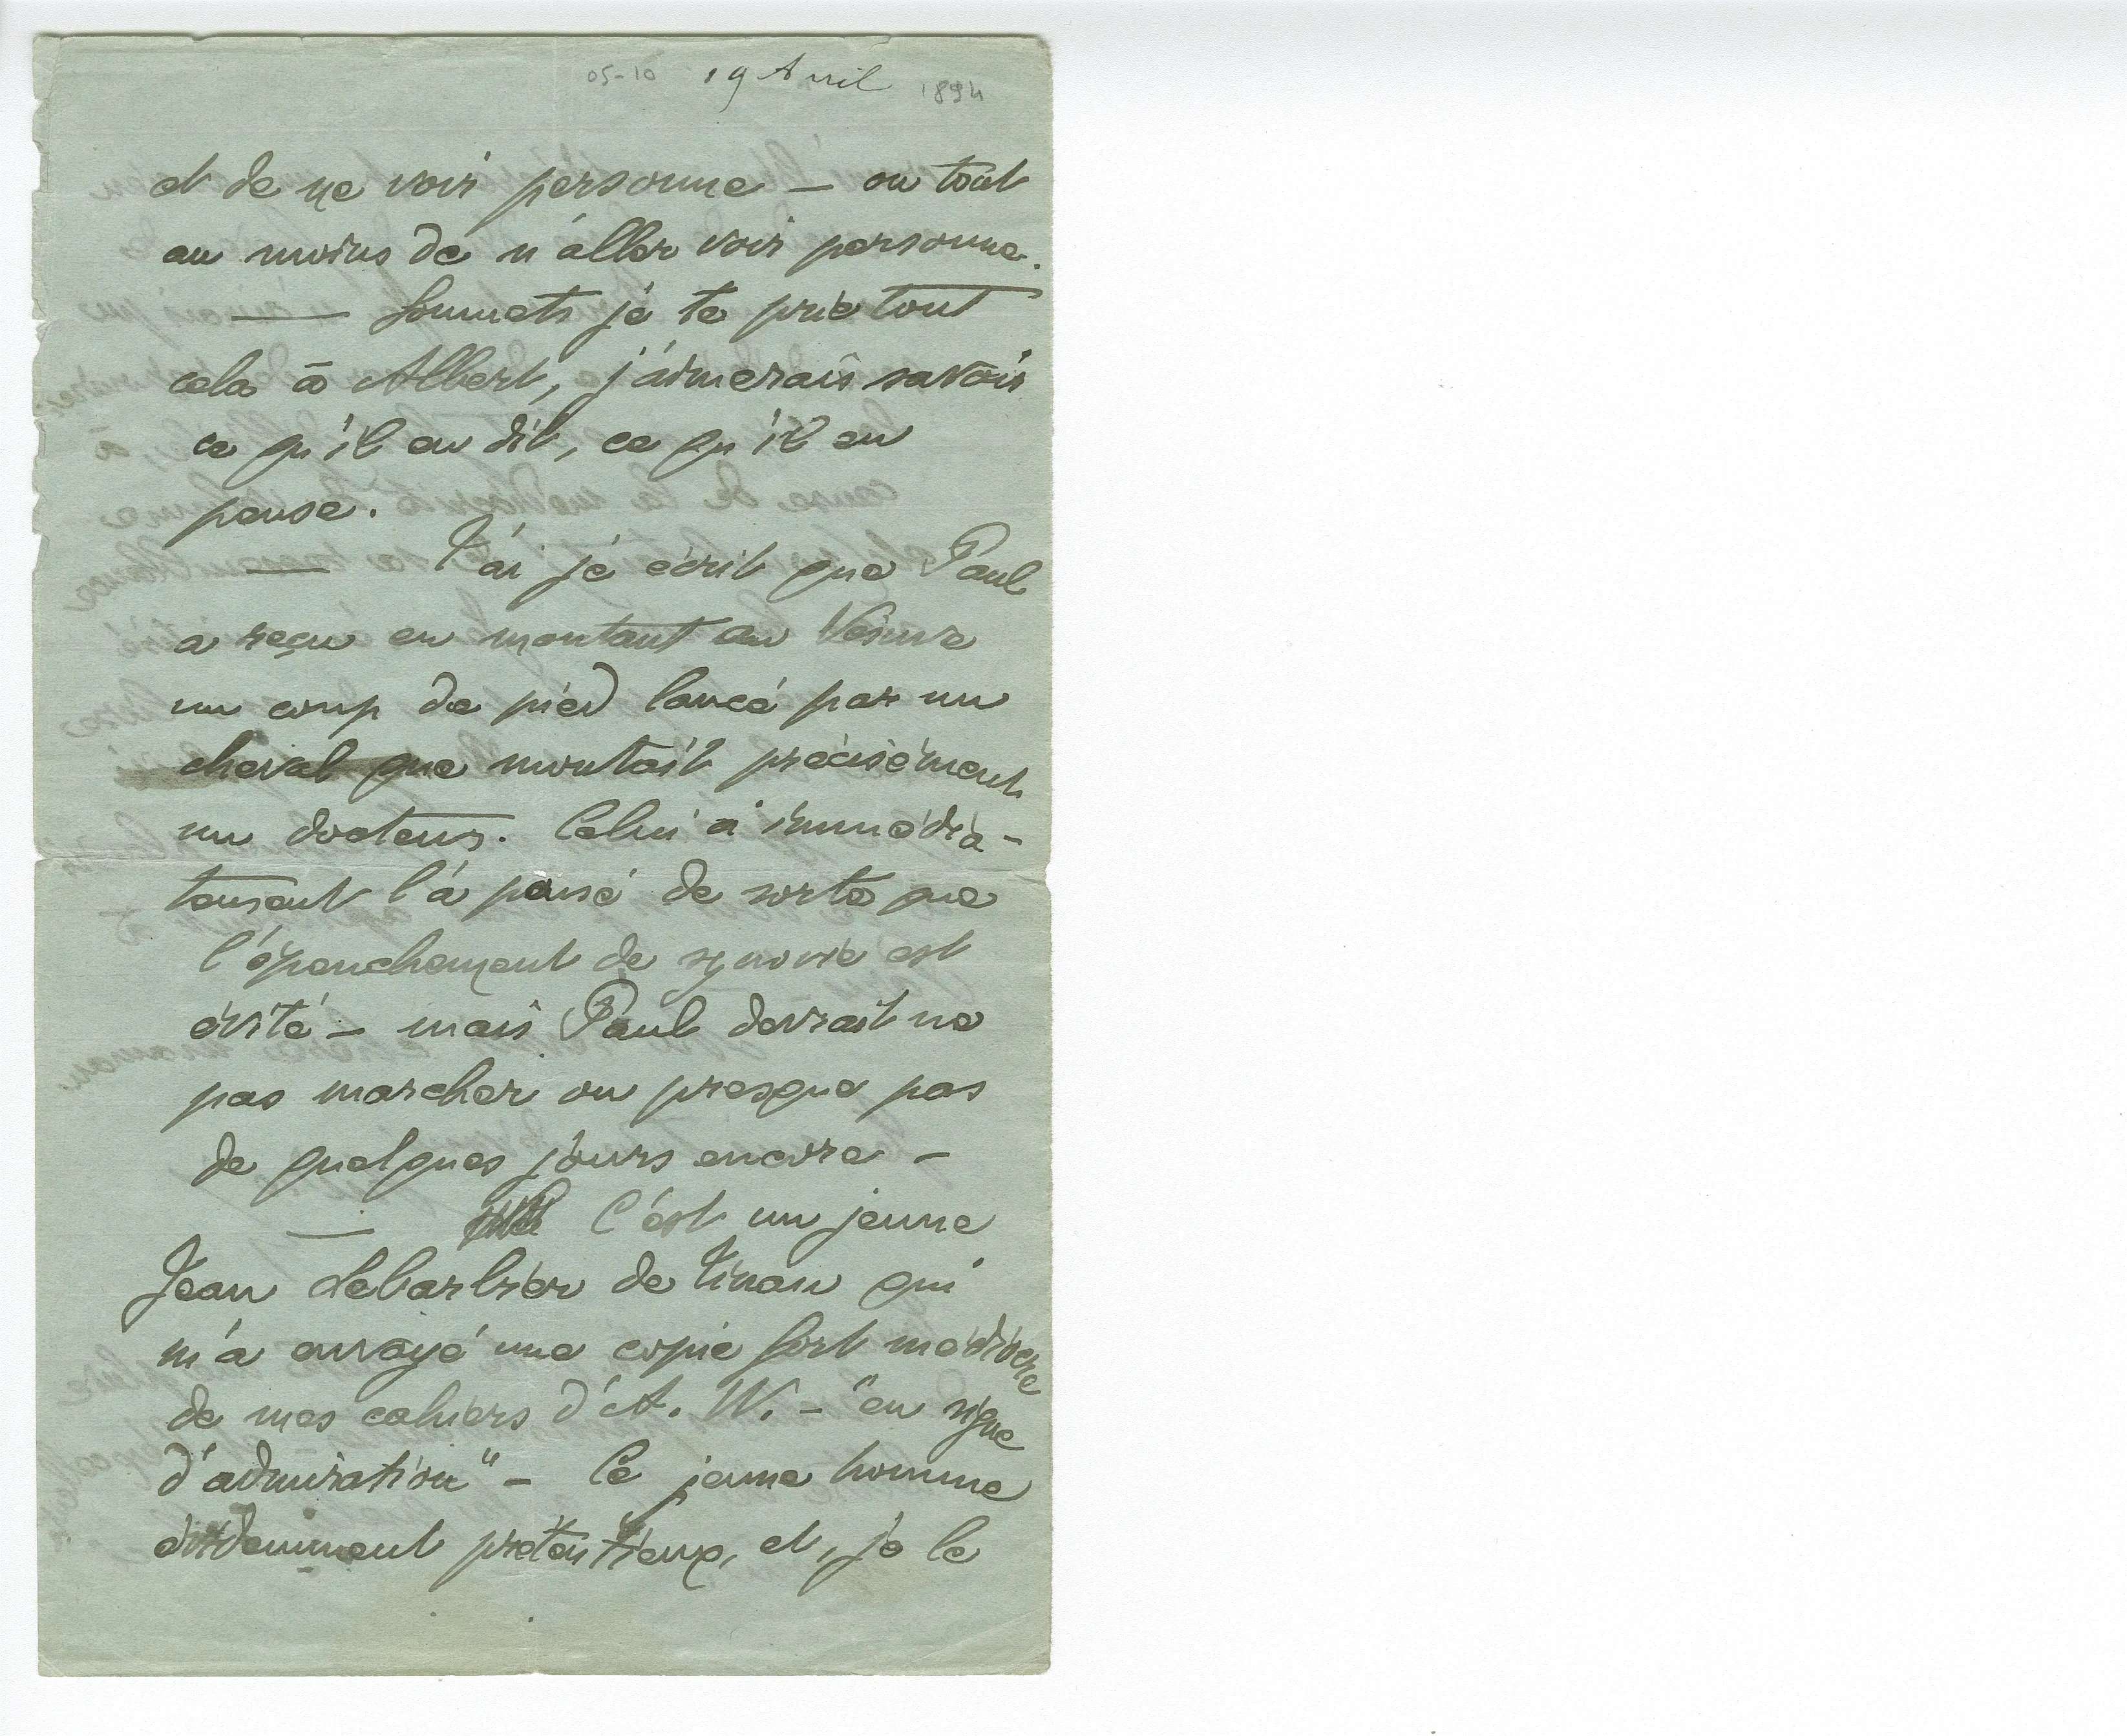 05-10 19 Avril 1894
et de ne voir personne – ou tout
au moins de n'aller voir personne.
— Soumets je te prie tout
cela à Albert, j'aimerais savoir
ce qu'il en dit, ce qu'il en
pense.
— T'ai je écrit que Paul
a reçu en montant au Vésuve
un coup de pied lancé par un
cheval que montait précisément
un docteur. Celui a immédia-
tement l'a pansé de sorte que
l'épanchement de synovie est
évité – mais Paul devrait ne
pas marcher ou presque pas
de quelques jours encore –
— C'est un jeune
Jean Lebarbier de Tinan qui
m'a envoyé une copie fort médiocre
de mes cahiers d'A. W. – "en signe
d'admiration" – Ce jeune homme
évidemment prétentieux, et, je le